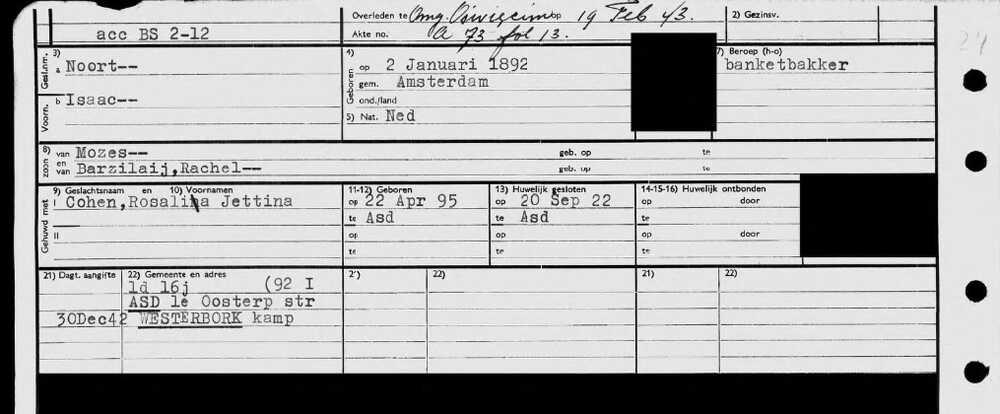 Overleden te Omg. Oświęcim op 19 Feb 43.
2) Gezinsv.
acc BS 2-12
Akte no. A 73 fol 13.
3) Gesl.nm. a Noort--
Voorn. b Isaac--
4) Geboren op 2 Januari 1892
gem. Amsterdam
ond./land
5) Nat. Ned
7) Beroep (h-o)
banketbakker
8) zoon van Mozes-- geb. op te
en van Barzilaij,Rachel-- geb. op te
9) Geslachtsnaam en 10) Voornamen 11-12) Geboren 13) Huwelijk gesloten 14-15-16) Huwelijk ontbonden
Gehuwd met I Cohen,Rosalina Jettina op 22 Apr 95 op 20 Sep 22 op door
te Asd te Asd te
II op op op door
te te te
21) Dagt. aangifte 22) Gemeente en adres 2') 22) 21) 22)
ld 16j (92 I
ASD 1e Oosterp str
30Dec42 WESTERBORK kamp